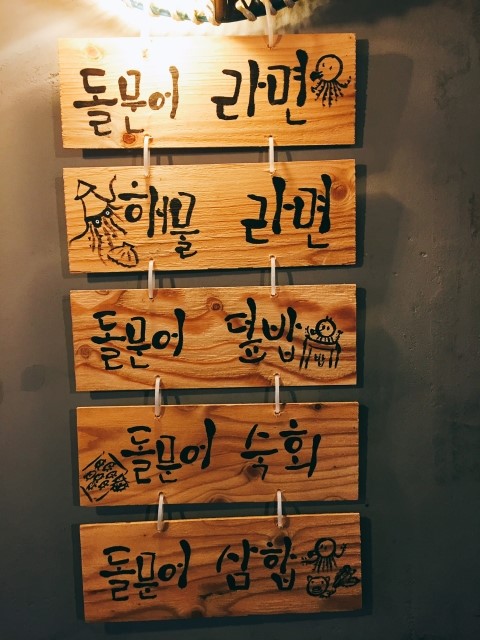 돌문어 라면
해물 라면
돌문어 덮밥
돌문어 숙회
돌문어 삼합